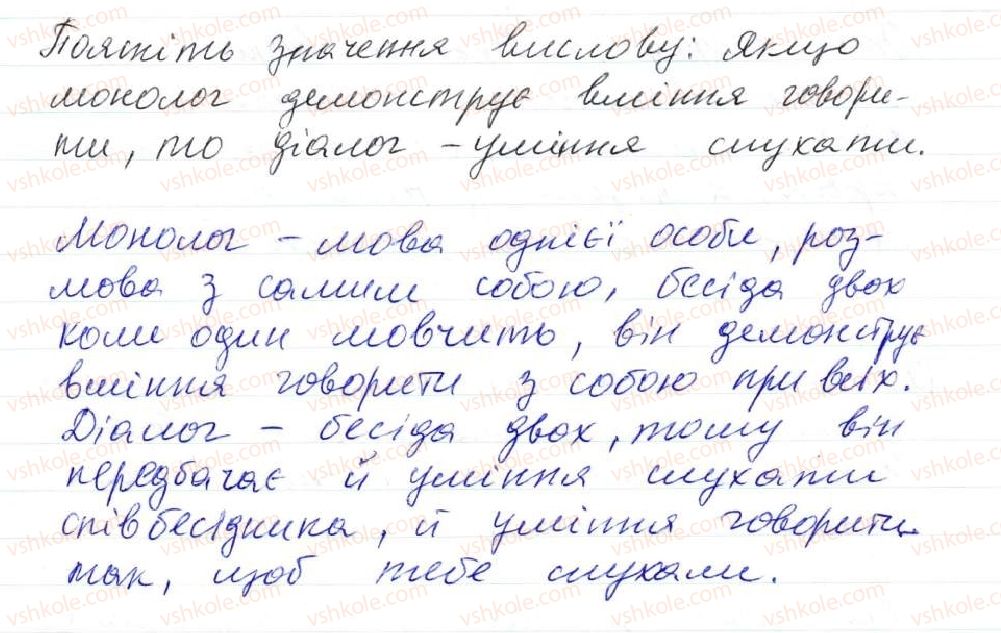 Поясніть значення вислову: Якщо
монолог демонструє вміння говори-
ти, то діалог – уміння слухати.
Монолог – мова однієї особи, роз-
мова з самим собою, бесіда двох
коли один мовчить, він демонструє
вміння говорити з собою при всіх.
Діалог – бесіда двох, тому він
передбачає й уміння слухати
співбесідника, й уміння говорити
так, щоб тебе слухали.